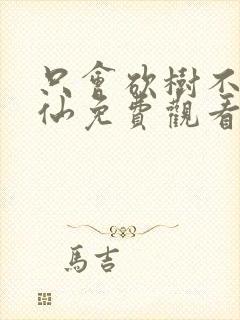 只會欲樹不
仙免費觀看
馬吉